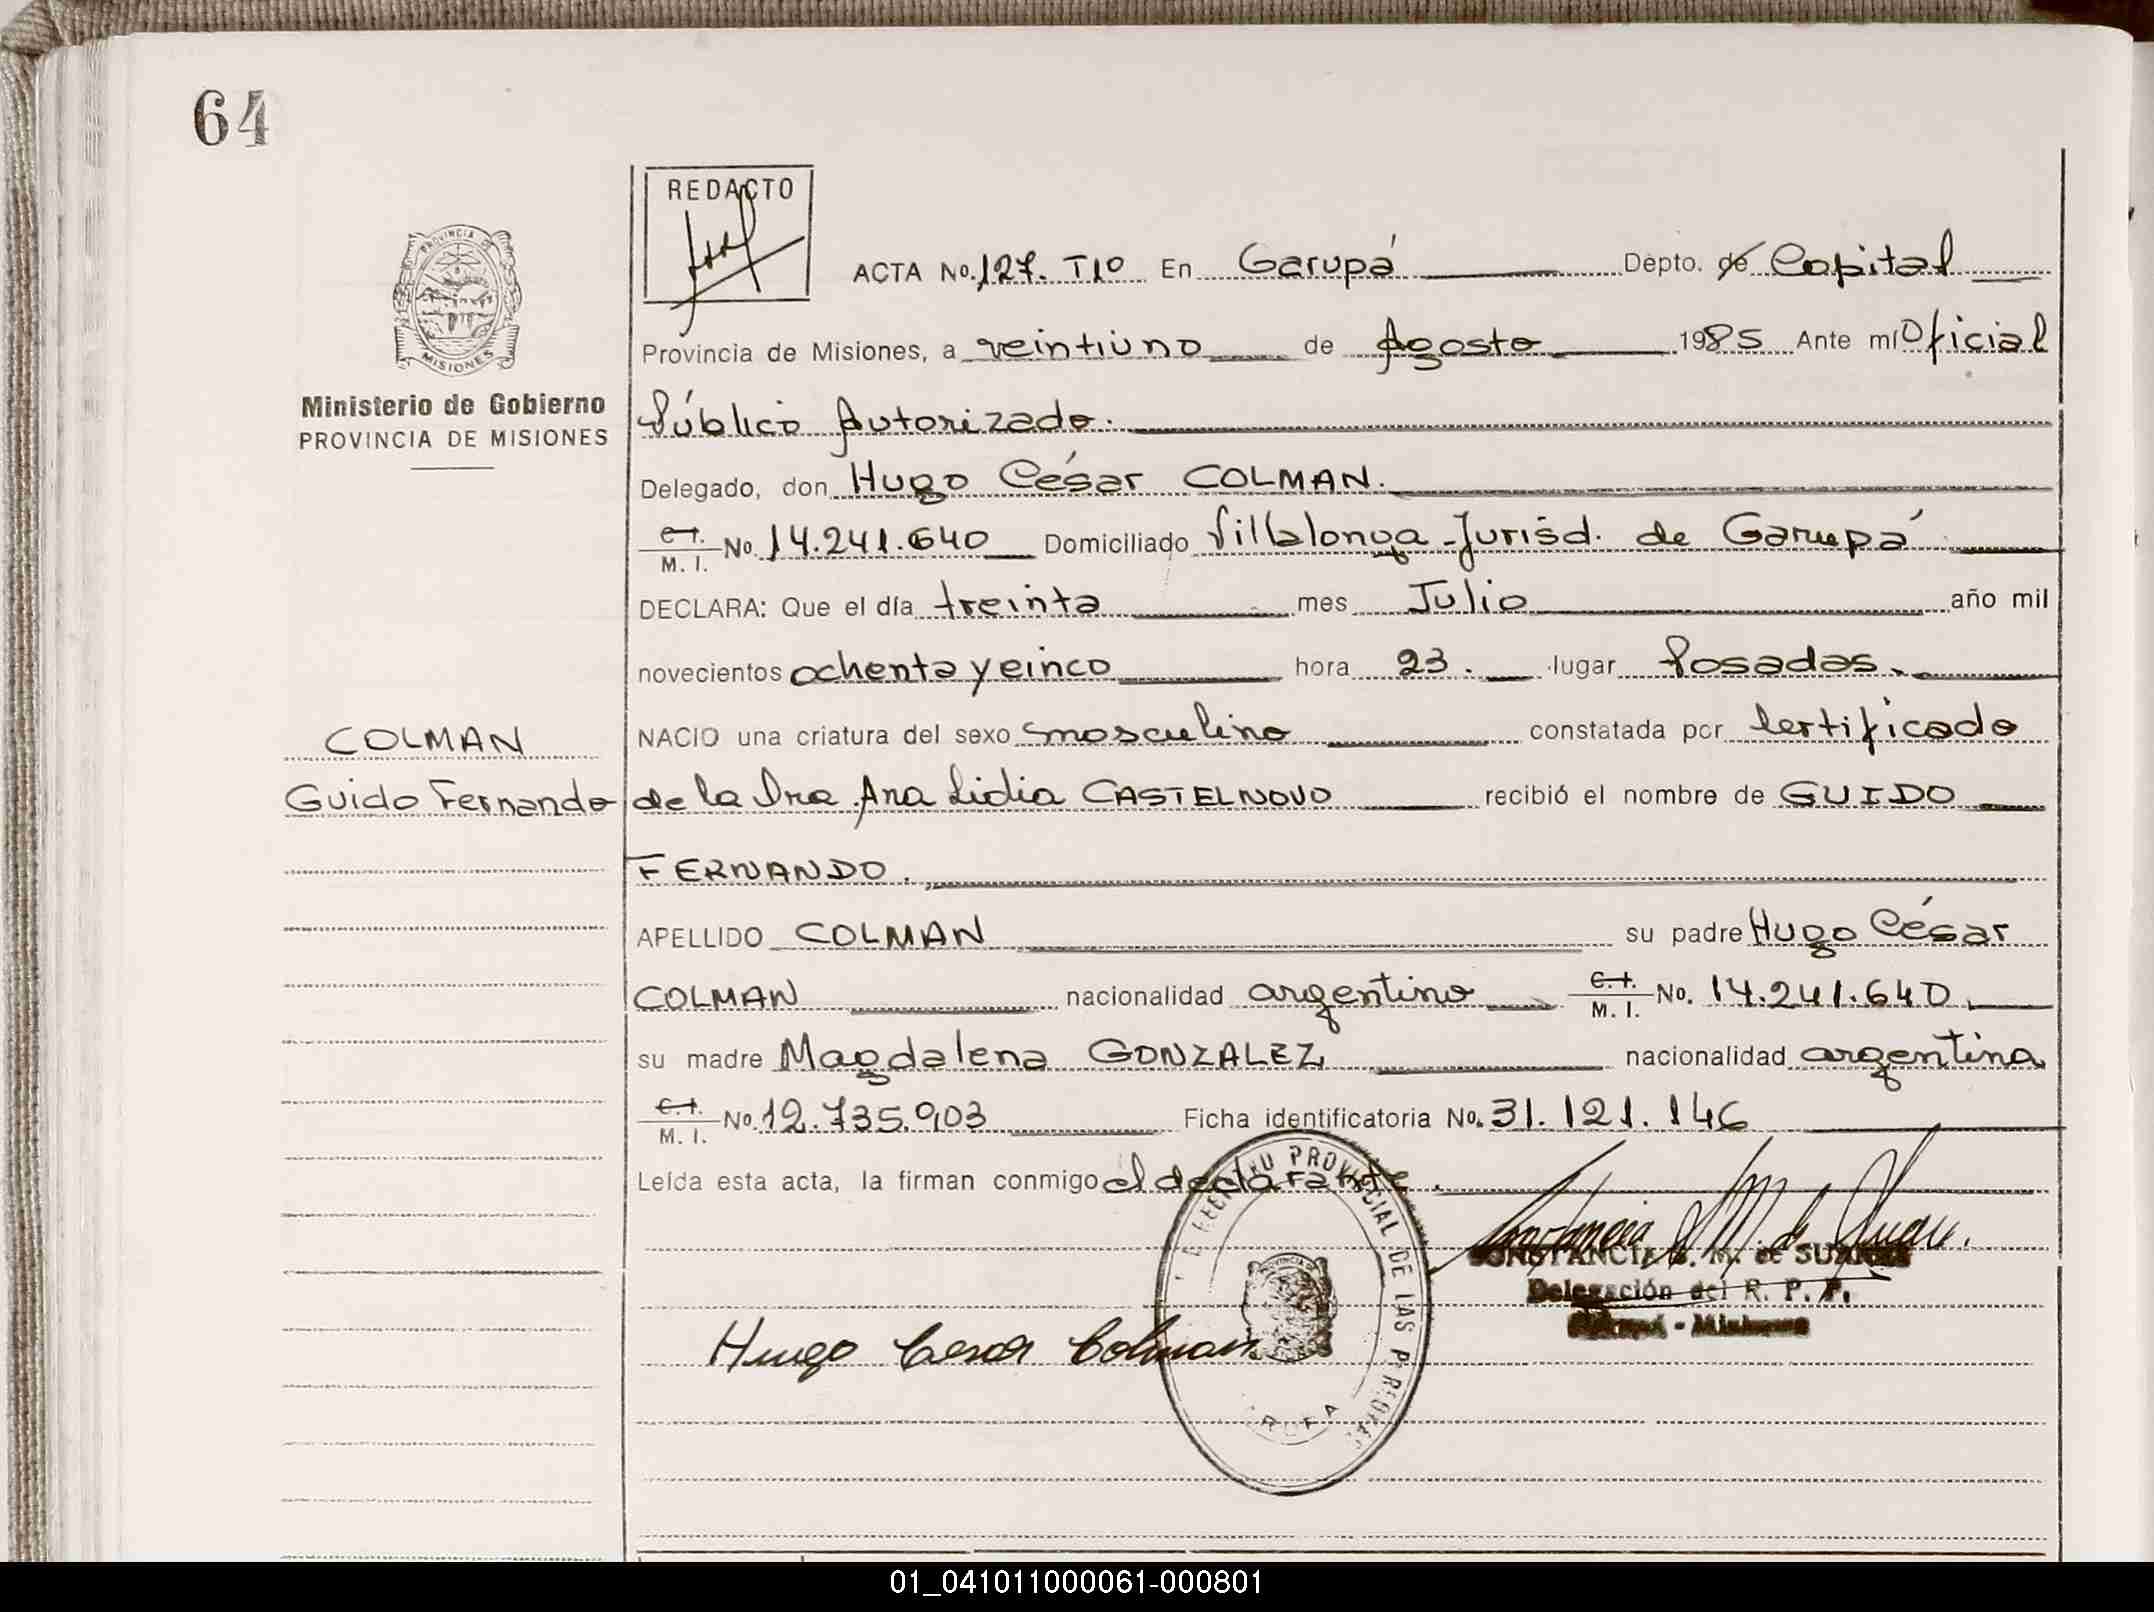 64
REDACTO
ACTA No. 127. T1º En Garupá Depto. de Capital
Provincia de Misiones, a veintiuno de Agosto 1985 Ante mí Oficial
Público Autorizado.
PROVINCIA DE
MISIONES
Ministerio de Gobierno
PROVINCIA DE MISIONES
Delegado, don Hugo César COLMAN.
C.I. / M. I. No. 14.241.640 Domiciliado Villalonga - Jurisd. de Garupá
DECLARA: Que el día treinta mes Julio año mil
novecientos ochenta y cinco hora 23. lugar Posadas.
COLMAN
NACIO una criatura del sexo masculino constatada por Certificado
Guido Fernando
de la Dra. Ana Lidia CASTELNOVO recibió el nombre de GUIDO
FERNANDO.
APELLIDO COLMAN su padre Hugo César
COLMAN nacionalidad argentino C.I. / M. I. No. 14.241.640.
su madre Magdalena GONZALEZ nacionalidad argentina
C.I. / M. I. No. 12.735.903 Ficha identificatoria No. 31.121.146
Leída esta acta, la firman conmigo el declarante.
REGISTRO PROVINCIAL DE LAS PERSONAS
CONSTANCIA S. M. de SUAREZ
Delegación del R. P. P.
Garupá - Misiones
Hugo Cesar Colman
01_041011000061-000801